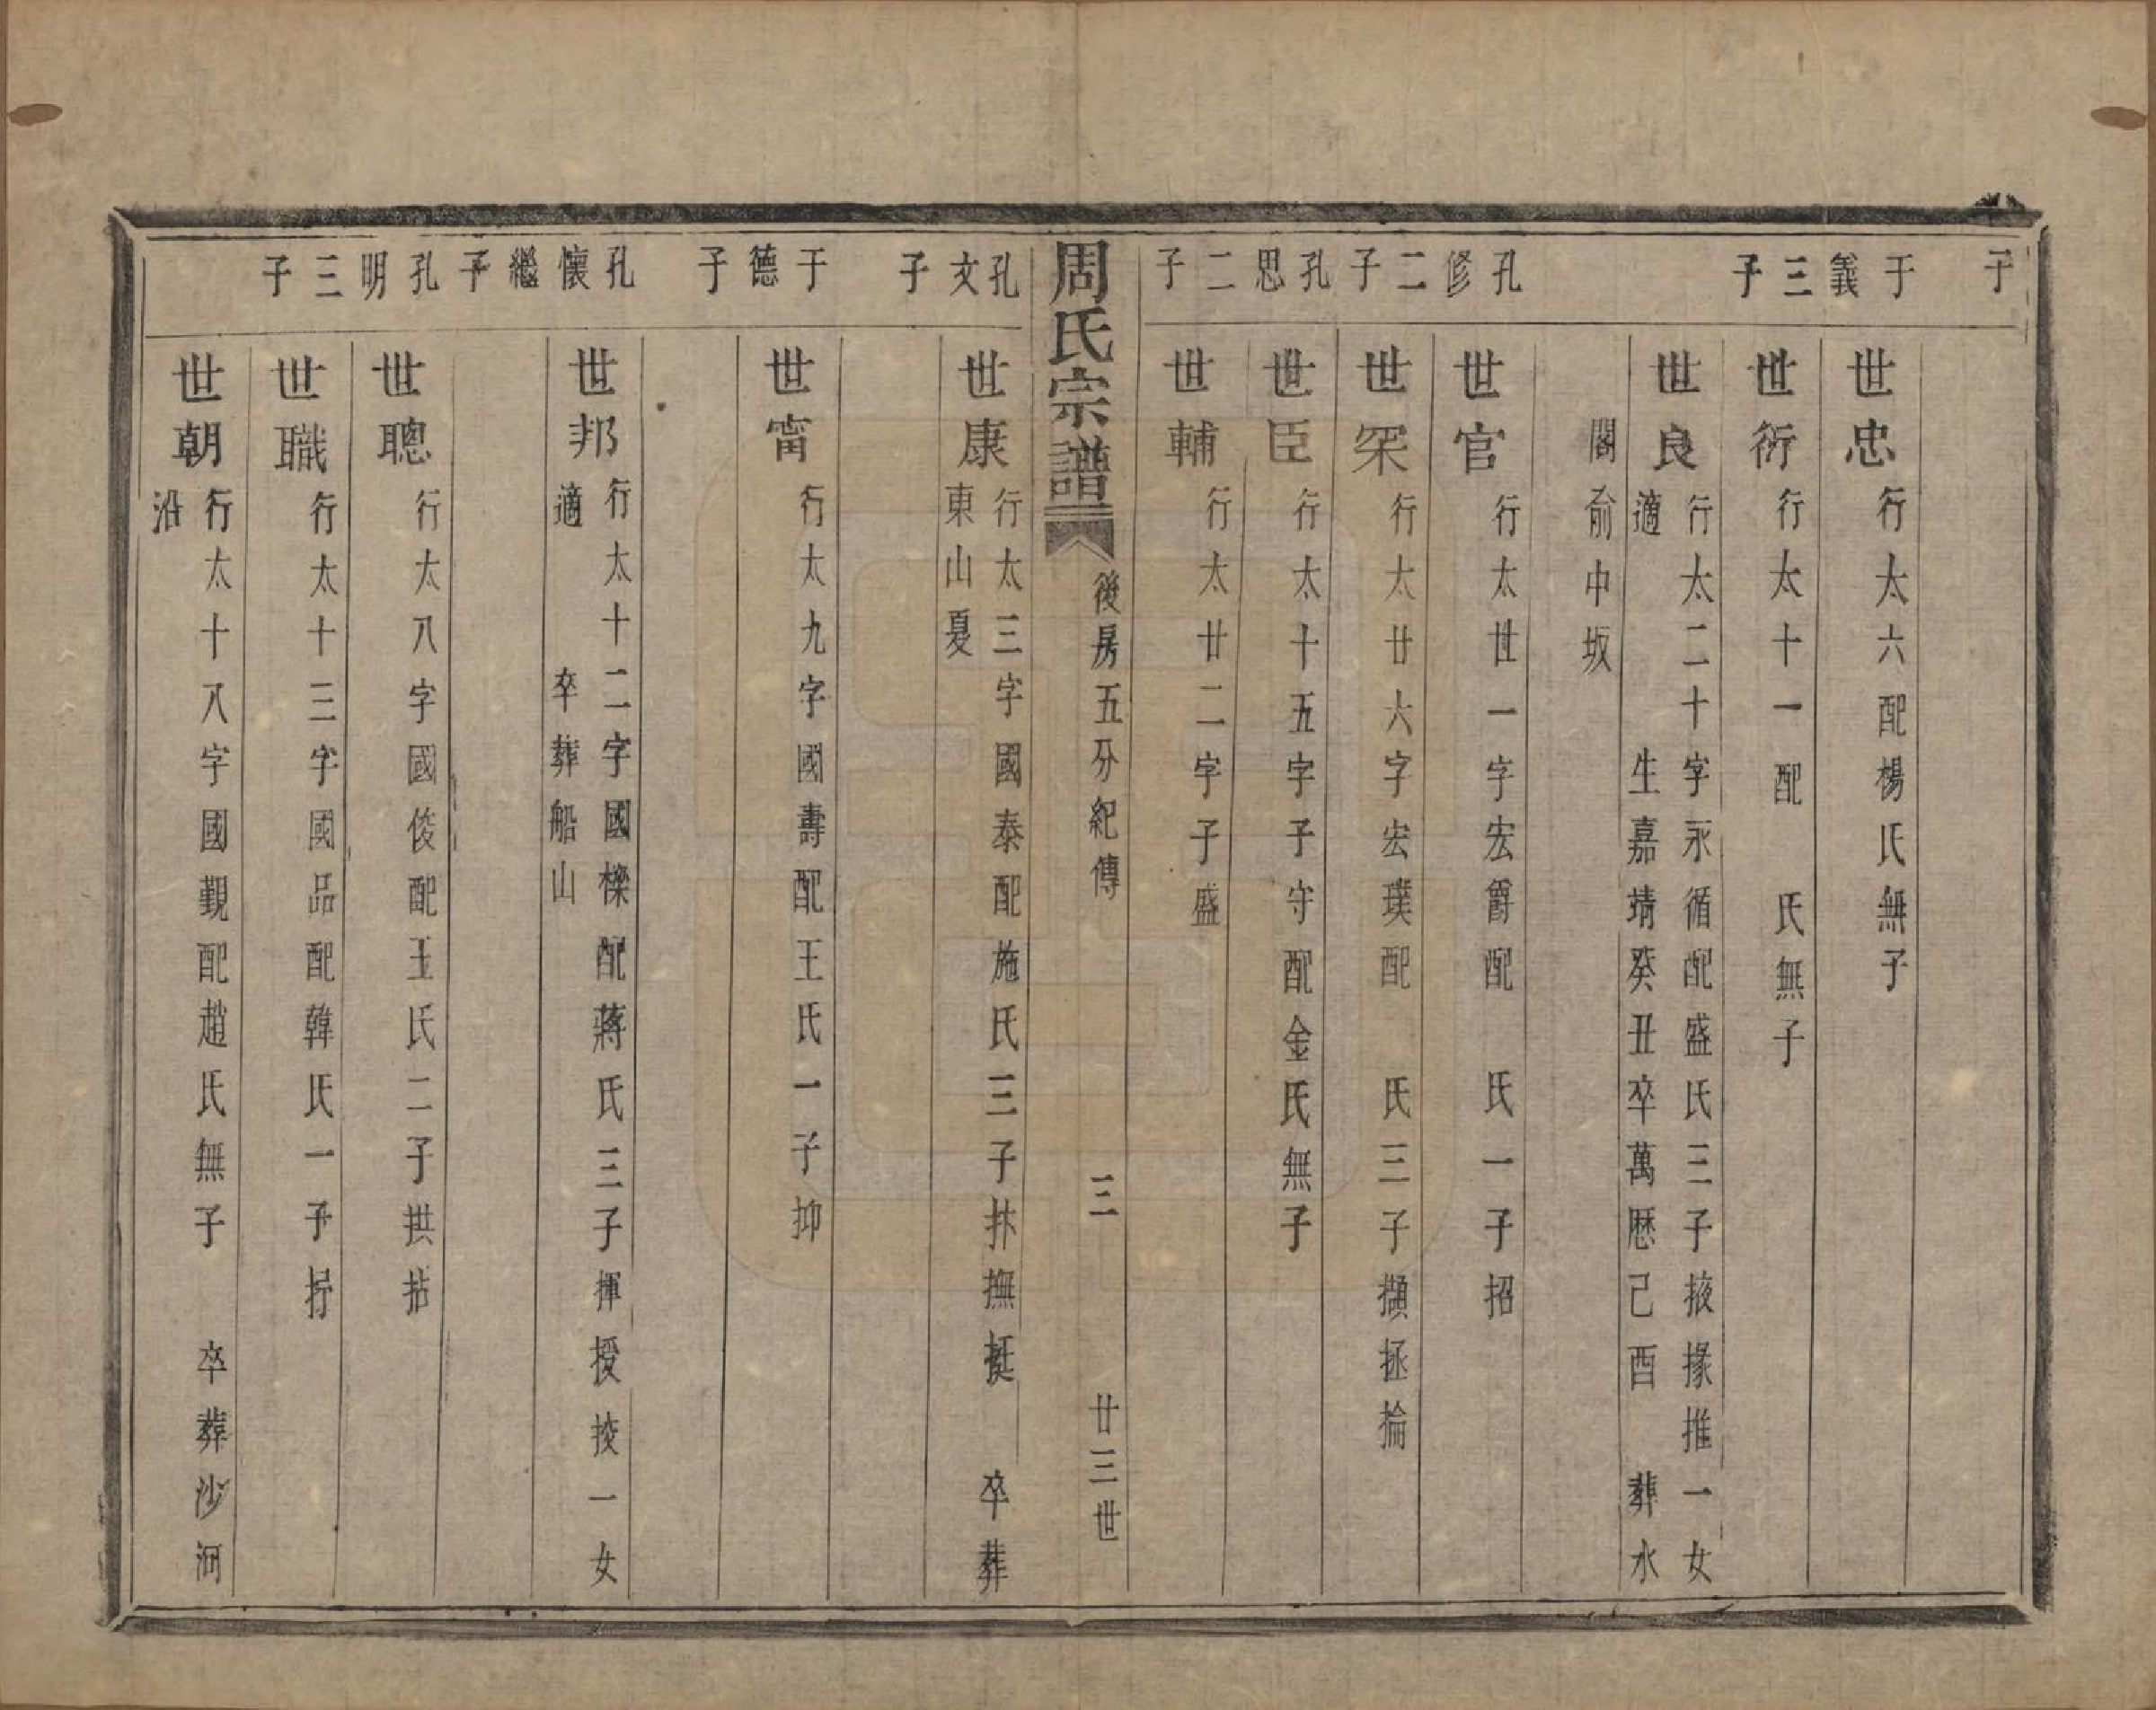 子
于義三子
世忠行太六配楊氏無子
世衍行太十一配　氏無子
世良行太二十字永循配盛氏三子掖掾推一女
適　生嘉靖癸丑卒萬厯己酉　葬水
閣俞中坂
孔修二子
世官行太丗一字宏爵配　氏一子招
世罙行太廿六字宏璞配　氏三子擷拯掄
孔思二子
世臣行太十五字子守配金氏無子
世輔行太廿二字子盛
周氏宗譜
後房五分紀傳　三　廿三世
孔文子
世康行太三字國泰配施氏三子抹撫挺　卒葬
東山夏
于德子
世甯行太九字國壽配王氏一子抑
孔懷繼子
世邦行太十二字國櫟配蔣氏三子揮授掕一女
適　卒葬船山
孔明三子
世聰行太八字國俊配王氏二子拱拈
世職行太十三字國品配韓氏一子拧
世朝行太十八字國觀配趙氏無子　卒葬沙河
沿